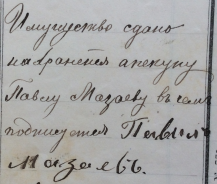 Имущество сдано
на хранения опекуну
Павлу Мазаеву въ чемъ
подписуется Павелъ
Мазаевъ.